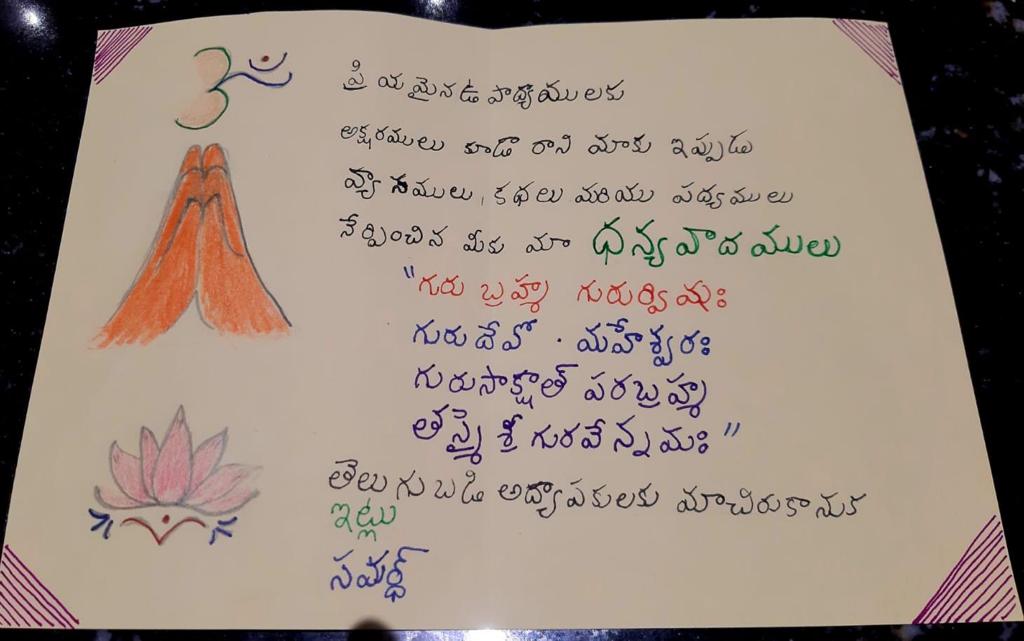 ప్రియమైనఉపాధ్యాయులకు
అక్షరములు కూడా రాని మాకు ఇప్పుడు
వ్యాసములు, కథలు మరియు పద్యములు
నేర్పించిన మీకు మా ధన్యవాదములు
"గురు బ్రహ్మ గురుర్విషః
గురుదేవో · మహేశ్వరః
గురుసాక్షాత్ పరబ్రహ్మ
తస్మై శ్రీ గురవేన్నమః"
తెలుగుబడి అధ్యాపకులకు మాచిరుకానుక
ఇట్లు
సమర్థ్